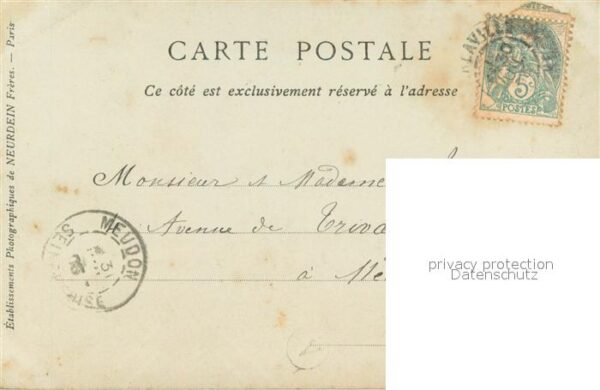 CARTE POSTALE
Ce côté est exclusivement réservé à l'adresse
Établissements Photographiques de NEURDEIN Frères. — Paris
5
POSTES
Monsieur & Madame
Avenue de Triva
à Me
MEUDON
31
SEINE
privacy protection
Datenschutz